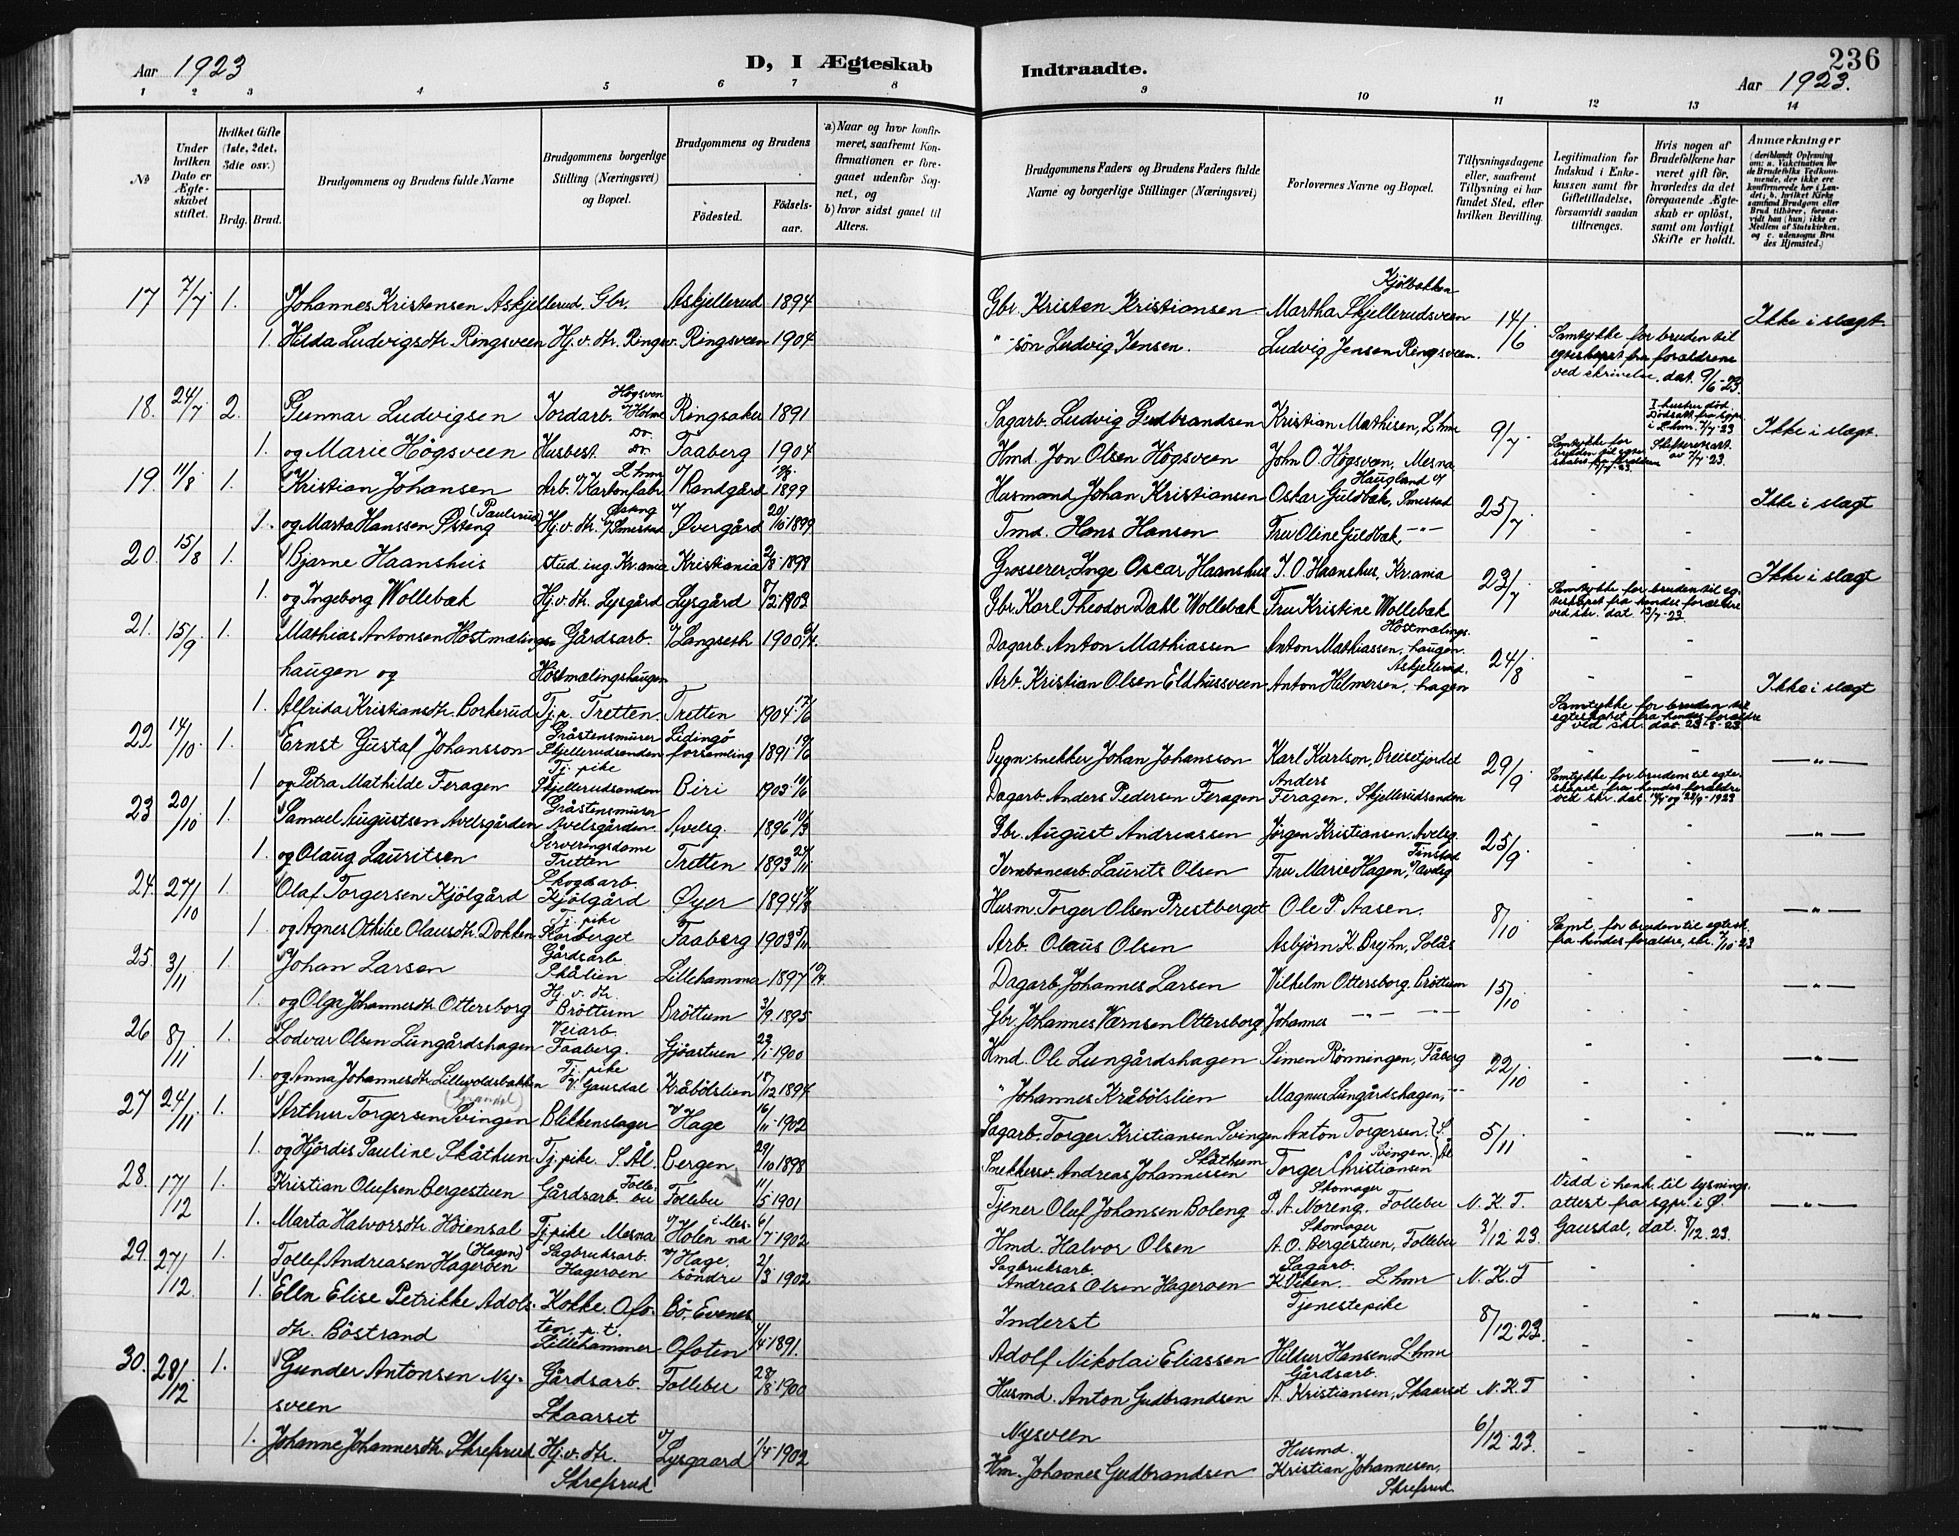 Aar 1923
D, I Ægteskab
Indtraadte.
236
Aar 1923.
1 2 3 4 5 6 7 8
9 10 11 12 13 14
No
Under hvilken Dato er Ægteskabet stiftet.
Hvilket Gifte (1ste, 2det, 3die osv.)
Brdg. Brud.
Brudgommens og Brudens fulde Navne
Brudgommens borgerlige Stilling (Næringsvei) og Bopæl.
Brudgommens og Brudens
Fødested. Fødselsaar.
a) Naar og hvor konfirmeret, saafremt Konfirmationen er foregaaet udenfor Sognet, og
b) hvor sidst gaaet til Alters.
Brudgommens Faders og Brudens Faders fulde Navne og borgerlige Stillinger (Næringsvei)
Forlovernes Navne og Bopæl.
Tillysningsdagene eller, saafremt Tillysning ei har fundet Sted, efter hvilken Bevilling.
Legitimation for Indskud i Enkekassen samt for Giftetilladelse, forsaavidt saadan tiltrænges.
Hvis nogen af Brudefolkene har været gift før, hvorledes da det foregaaende Ægteskab er opløst, samt om lovligt Skifte er holdt.
Anmærkninger
17 7/7 1. Johannes Kristensen Askjellerud. Gbr. Askjellerud 1894
Gbr. Kristen Kristiansen Martha Skjellerudsveen Kjølbakken 14/6 Ikke i slægt.
1. Hilda Ludvigsdtr. Ringsveen Hj.v. dtr. Ringsv. Ringsveen 1904
" søn Ludvig Jensen. Ludvig Jensen Ringsveen. Samtykke for bruden til egteskapet fra forældrene ved skrivelse, dat. 9/6-23.
18. 24/7 2. Gunnar Ludvigsen Jordarb. Högsveen v/ Holme Ringsaker 1891
Sagarb. Ludvig Gudbrandsen Kristian Mathisen, Lhmr 9/7 I hustru död. Dødsatt. fra sgpr. i Lhmr. 7/7-23 Ikke i slægt.
1. og Marie Högsveen Husbest. do. do. Faaberg 1904
Hmd. Jon Olsen Högsveen John O. Högsveen, Mesna Samtykke for bruden til egteskabet fra forældrene 7/7 23. Skifteattest av 7/7 23.
19. 11/8 1. Kristian Johansen Arb. v/ Kartonfabr. Lhmr v/ Randgård 1899
Husmand Johan Kristiansen Oskar Guldbak, Smestad Haugland v/ 25/7 Ikke i slægt
1. og Marta Hanssen Østeng (Paulsrud) Hj.v. dtr. Østeng v/ Smestad v/ Övergård 20/10 1899
Tmd. Hans Hansen Fru Oline Guldbak, -"-
20. 15/8 1. Bjarne Haanshus stud. ing. Kr.ania Kristiania 2/8 1898
Grosserer, Inge Oscar Haanshus I. O. Haanshus, Kr.ania 23/7 Ikke i slægt
1. og Ingeborg Wollebæk Hj.v. dtr. Lysgård Lysgård 8/2 1903
Gbr. Karl Theodor Dahl Wollebæk Fru Kristine Wollebæk Samtykke for bruden til egteskapet fra hendes forældre ved skr. dat. 13/7 23.
21. 15/9 1. Mathias Antonsen Höstmælings- Gårdsarb. v/ Langseth 1900 6/4.
haugen og Höstmælingshaugen
Dagarb. Anton Mathiassen Anton Mathiassen, Höstmælings-haugen. 24/8 Ikke i slægt
1. Alfrida Kristiansdtr. Borkerud Tj. p. Tretten. Tretten 1904 17/6
Arb. Kristian Olsen Eldhussveen Anton Hilmersen, Askjellerud. hagen Samtykke for bruden til egteskapet fra hendes forældre ved skr. dat. 23-8-23.
22 14/10 1. Ernst Gustaf Johansson Gråstensmurer Skjellerudsenden Lidingö forsamling 1891 19/6
Bygn.snekker Johan Johansson Karl Karlson, Breisetjordet 29/9 -"-
1 og Petra Mathilde Feragen Tj. pike Skjellerudsenden Biri 1903 10/6
Dagarb. Anders Pedersen Feragen Anders Feragen, Skjellerudsenden Samtykke for bruden til egteskapet fra hendes forældre ved skr. dat. 19/9 og 22/9-1923
23 20/10 1. Samuel Augustsen Avelsgården Gråstensmurer Avelsgården. Avelsg. 1896 10/3
Gbr. August Andreassen Jörgen Kristiansen, Avelsg. 25/9 -"-
1. og Olaug Lauritsen Serveringsdame Tretten Tretten 1893 24/11
Jernbanearb. Laurits Olsen Fru Marie Hagen, Finstad v/ Avelsg
24. 27/10 1. Olaf Torgersen Kjölgård Skogsarb. Kjölgård Øyer 1894 4/8
Husm. Torger Olsen Prestberget Ole P. Aasen. 8/10 -"-
1. og Agnes Othilie Olausdtr. Dokken Tj. pike Storberget Faaberg 1903 5/11
Arb. Olaus Olsen Asbjörn K. Bryhn, Solås Samt. for bruden til egtesk. fra hendes forældre, skr. 7/10 23
25. 3/11 1. Johan Larsen Gårdsarb Skålien Lillehammer 1897
Dagarb. Johannes Larsen Vilhelm Ottersborg, Bröttum 15/10 -"-
1. og Olga Johannesdtr. Ottersborg Hj. v. dtr. Bröttum Bröttum 3/9 1895
Gbr. Johannes Værnsen Ottersborg Johannes -"- -"-
26 8/11 1. Lodvar Olsen Lungårdshagen Veiarb Faaberg. Gjøastuen 23/1 1900
Hmd. Ole Lungårdshagen Simen Rönningen, Fåberg 22/10 -"-
1. og Anna Johannesdtr. Lillevoldsbakken Tj. pike V. Gausdal Kråbölslien 18/12 1894
" Johannes Kråbölslien Magnus Lungårdshagen, -"-
27 24/11 1. Arthur Torgersen Svingen Blikkenslager v/ Hage 16/11 1902
Sagarb. Torger Kristiansen Svingen Anton Torgersen. 5/11 -"-
1. og Hjördis Pauline Skåthun Tj. pike. S. Ål. Bergen 29/10 1898
Snekkersv. Andreas Johannessen Skåthum Torger Christiansen Svingen. S. Ål
28. 17/12 1. Kristian Olufsen Bergestuen Gårdsarb Follebu Follebu 11/5 1901
Tjener Oluf Johansen Boleng P. A. Noreng, Skomager Follebu N. K. T. 3/12 23. Vidd i henh. til lysningsattest fra sgpr. i Ø. Gausdal, dat. 3/12 23. -"-
1. Marta Halvorsdtr. Höiensal Tj. pike Mesna v/ Holen i Mesna 6/7 1902
Hmd. Halvor Olsen A. O. Bergestuen, Skomager Follebu
29. 27/12 1. Tollef Andreasen Hageroen (Hagen) Sagbruksarb. Hageroen v/ Hage, söndre 2/3 1902
Sagbruksarb. Andreas Olsen Hageroen Sagarb. Lhmr N. K. T 8/12 23. -"-
1. Elln Elise Petrikke Adolfs-dtr. Böstrand Kokke Ofoten p. t. Lillehammer Bö, Evenes Ofoten 4/4 1891.
Inderst Adolf Nikolai Eliassen Tjenestepike Hildur Hansen, Lhmr
30. 28/12 1. Gunder Antonsen Nysveen Gårdsarb. Skaarset Follebu 28/8 1900
Husmd. Anton Gudbrandsen Nysveen Gårdsarb. A. Kristiansen, Skaarset N. K. T 6/12 23. -"-
1. Johanne Johannesdtr. Skrefsrud Hj.v. dtr. Skrefsrud v/ Lysgaard 1/4 1902
Hm. Johannes Gudbrandsen Husmd. Kristian Johannesen, Skrefsrud